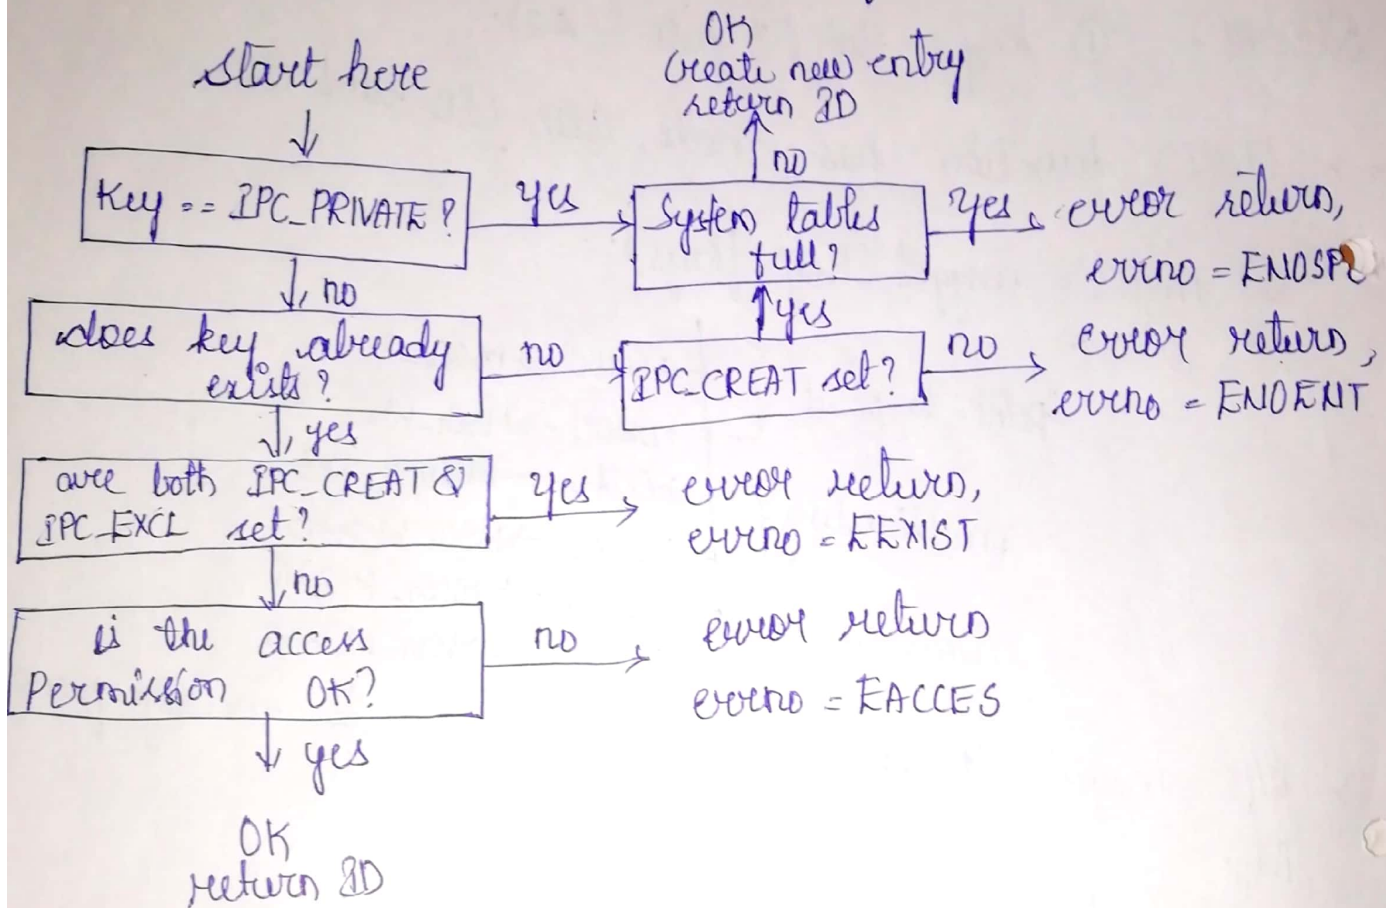 start here
OK
Create new entry
return ID
no
Key == IPC_PRIVATE ?
yes
System tables
full?
yes
error return,
errno = ENOSPC
no
yes
does key already
exists?
no
IPC_CREAT set?
no
error return,
errno = ENOENT
yes
are both IPC_CREAT &
IPC_EXCL set?
yes
error return,
errno = EEXIST
no
is the access
Permission OK?
no
error return
errno = EACCES
yes
OK
return ID